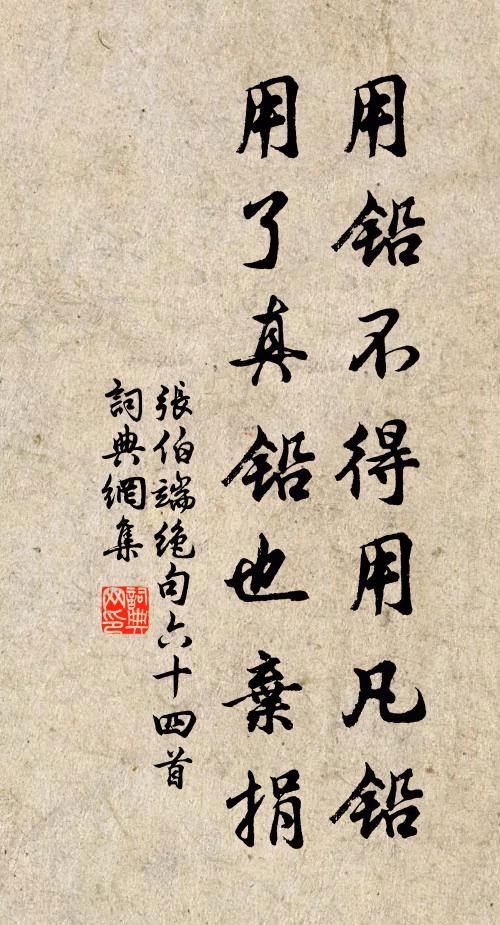 用鉛不得用凡鉛
用了真鉛也棄捐
張伯端絶句六十四首
詞典網集
詞典
网印